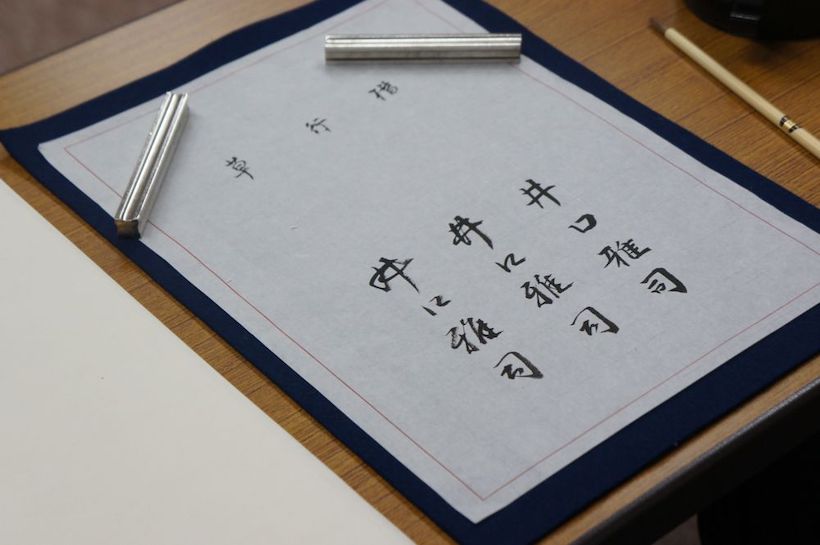 楷
行
草
井口雅司
井口雅司
井口雅司